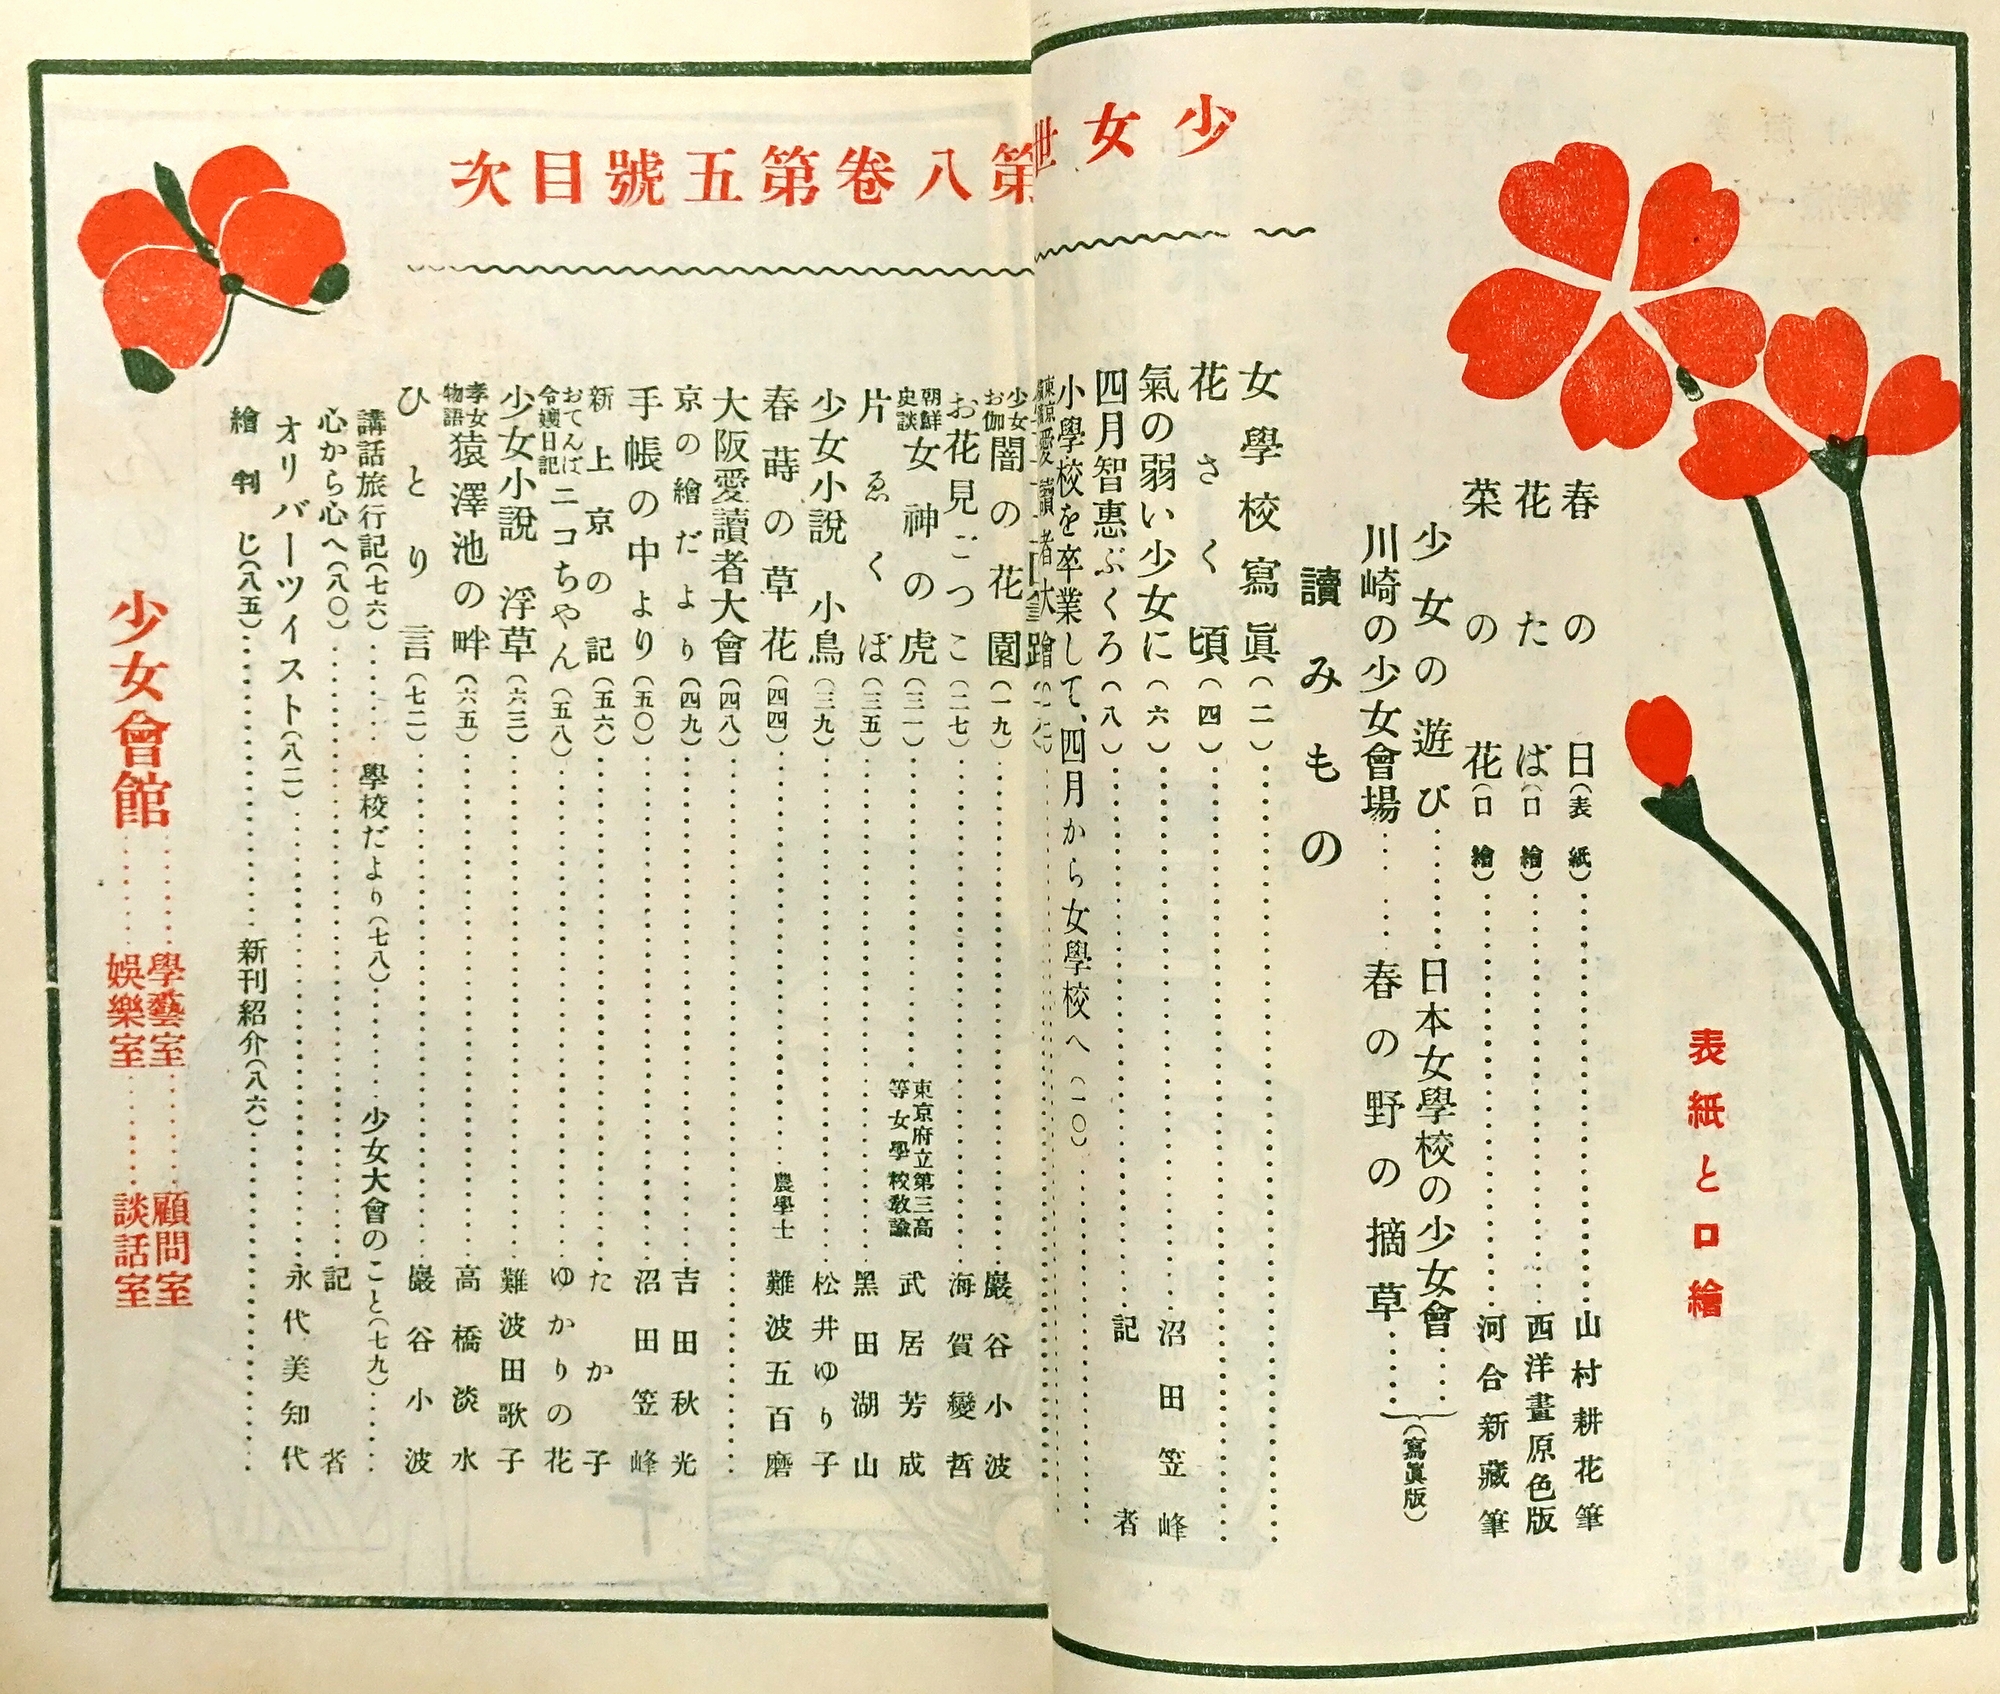 少女世
第八卷第五號目次
表紙と口繪
春の日(表紙)……山村耕花筆
花たば(口繪)……西洋畫原色版
菜の花(口繪)……河合新藏筆
少女の遊び……日本女學校の少女會……
川崎の少女會場……春の野の摘草……
(寫眞版)
讀みもの
女學校寫眞(二)……
花さく頃(四)……
氣の弱い少女に(六)……沼田笠峰
四月智惠ぶくろ(八)……記者
小學校を卒業して、四月から女學校へ(一〇)……
少女お伽 闇の花園(一九)……巖谷小波
お花見ごつこ(二七)……海賀變哲
朝鮮史談 女神の虎(三一)……東京府立第三高等女學校敎諭 武居芳成
片ゑくぼ(三五)……黑田湖山
少女小說 小鳥(三九)……松井ゆり子
春蒔の草花(四四)……農學士 難波五百磨
大阪愛讀者大會(四八)……
京の繪だより(四九)……吉田秋光
手帳の中より(五〇)……沼田笠峰
新上京の記(五六)……たか子
おてんば令孃日記 ニコちやん(五八)……ゆかりの花
少女小說 浮草(六三)……難波田歌子
孝女物語 猿澤池の畔(六五)……高橋淡水
ひとり言(七二)……巖谷小波
講話旅行記(七六)……學校だより(七八)……少女大會のこと(七九)……
心から心へ(八〇)……記者
オリバーツイスト(八二)……永代美知代
繪判じ(八五)……新刊紹介(八六)……
少女會館……學藝室……顧問室
……娛樂室……談話室